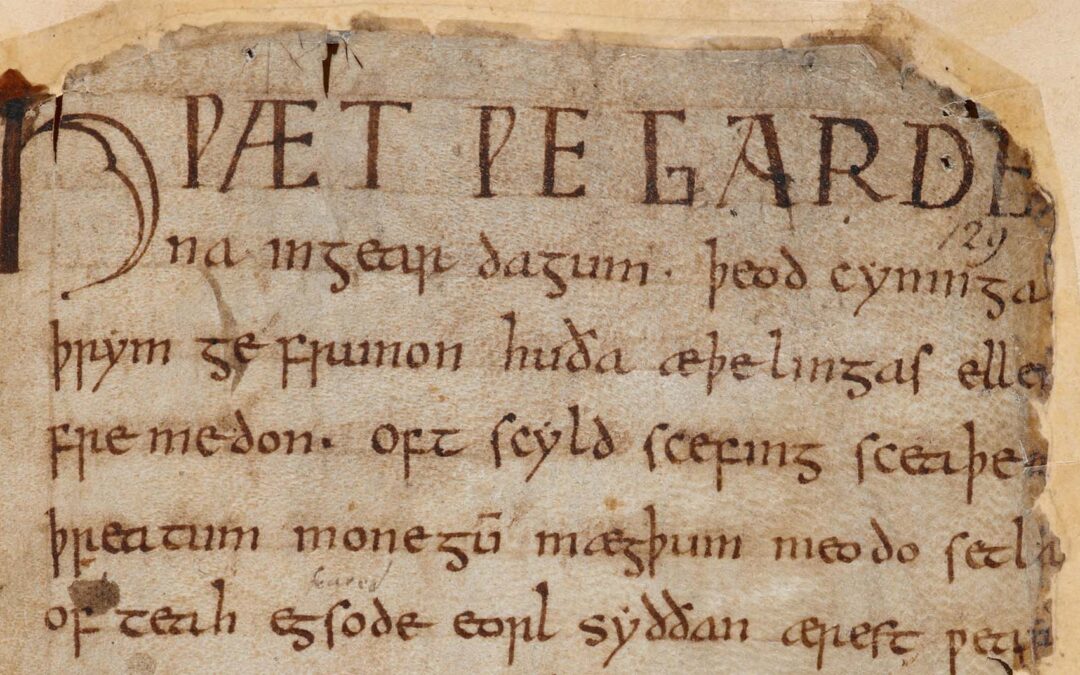 HǷÆT ǷE GARDE
129
na ingear dagum. þeod cyninga
þrym ge frunon huða æþelingas elle
fremedon. oft scyld scefing sceaþe
þreatum monegū mægþum meodo setla
of teah egsode eorl syððan ærest ƿear